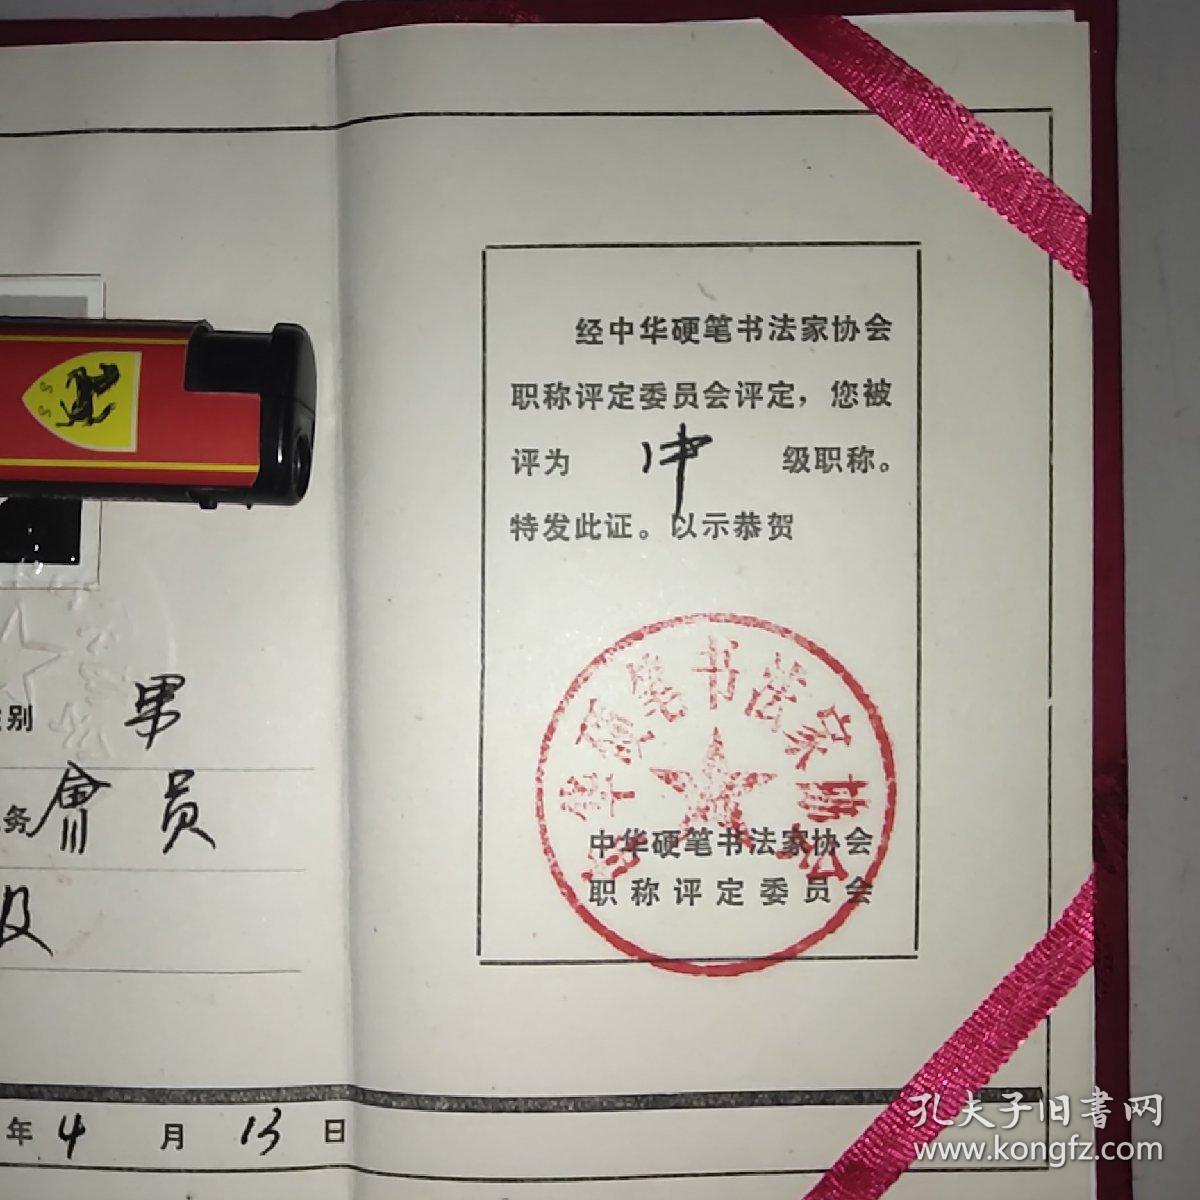 经中华硬笔书法家协会
职称评定委员会评定，您被
评为 中 级职称。
特发此证。以示恭贺
中华硬笔书法家协会
中华硬笔书法家协会
职称评定委员会
别 男
务 會员
级
年 4 月 13 日
S S
孔夫子旧书网
www.kongfz.com